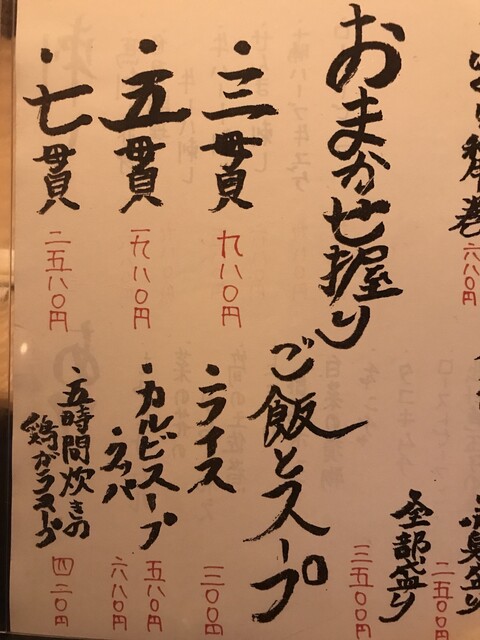 六八〇円
二五〇〇円
・全部盛り
三五〇〇円
おまかせ握り
・三貫
九八〇円
・五貫
一九八〇円
・七貫
二五八〇円
ご飯とスープ
・ライス
三〇〇円
・カルビスープ
五八〇円
・クッパ
六八〇円
・五時間炊きの
鶏ガラスープ
四二〇円